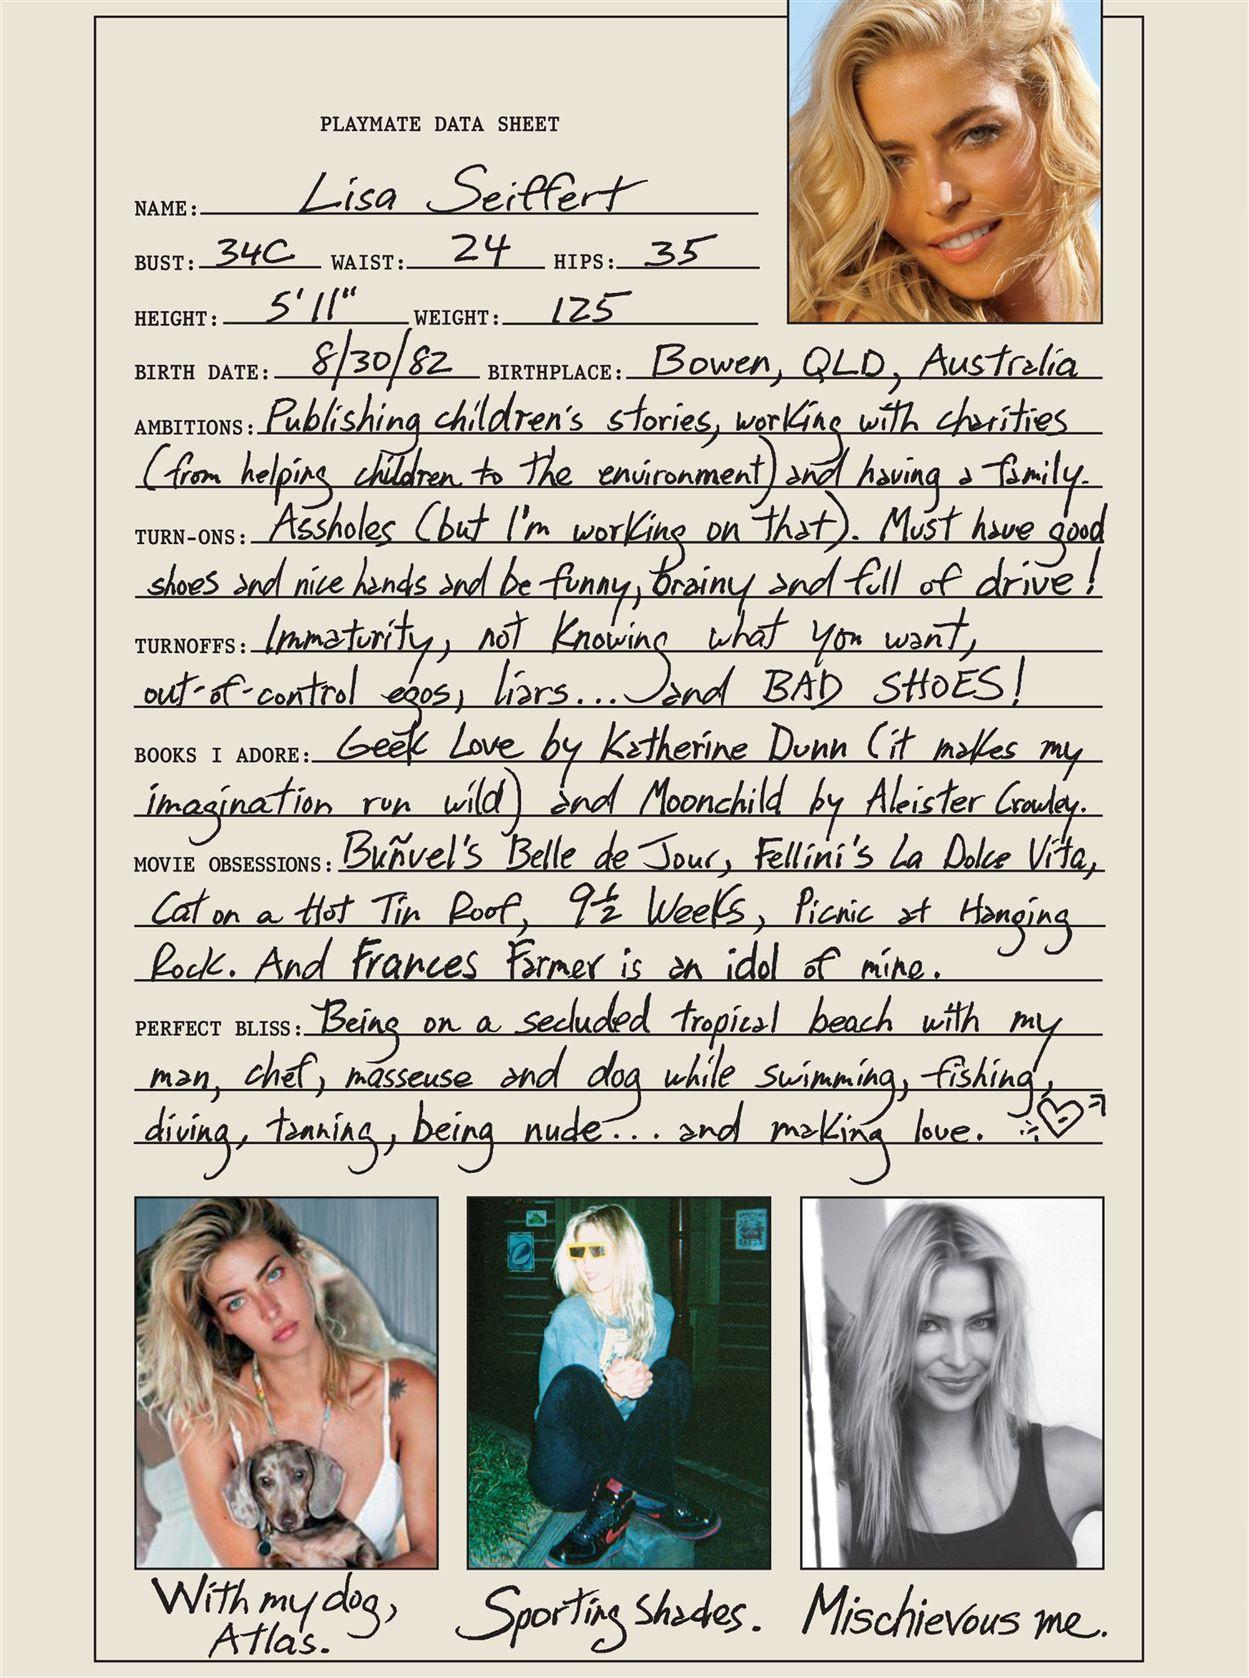 PLAYMATE DATA SHEET
NAME: Lisa Seiffert
BUST: 34C WAIST: 24 HIPS: 35
HEIGHT: 5'11" WEIGHT: 125
BIRTH DATE: 8/30/82 BIRTHPLACE: Bowen, QLD, Australia
AMBITIONS: Publishing children's stories, working with charities
(from helping children to the environment) and having a family.
TURN-ONS: Assholes (but I'm working on that). Must have good
shoes and nice hands and be funny, brainy and full of drive!
TURNOFFS: Immaturity, not knowing what you want,
out-of-control egos, liars... and BAD SHOES!
BOOKS I ADORE: Geek Love by Katherine Dunn (it makes my
imagination run wild) and Moonchild by Aleister Crowley.
MOVIE OBSESSIONS: Buñuel's Belle de Jour, Fellini's La Dolce Vita,
Cat on a Hot Tin Roof, 9½ Weeks, Picnic at Hanging
Rock. And Frances Farmer is an idol of mine.
PERFECT BLISS: Being on a secluded tropical beach with my
man, chef, masseuse and dog while swimming, fishing,
diving, tanning, being nude... and making love.
With my dog,
Atlas.
Sporting shades.
Mischievous me.